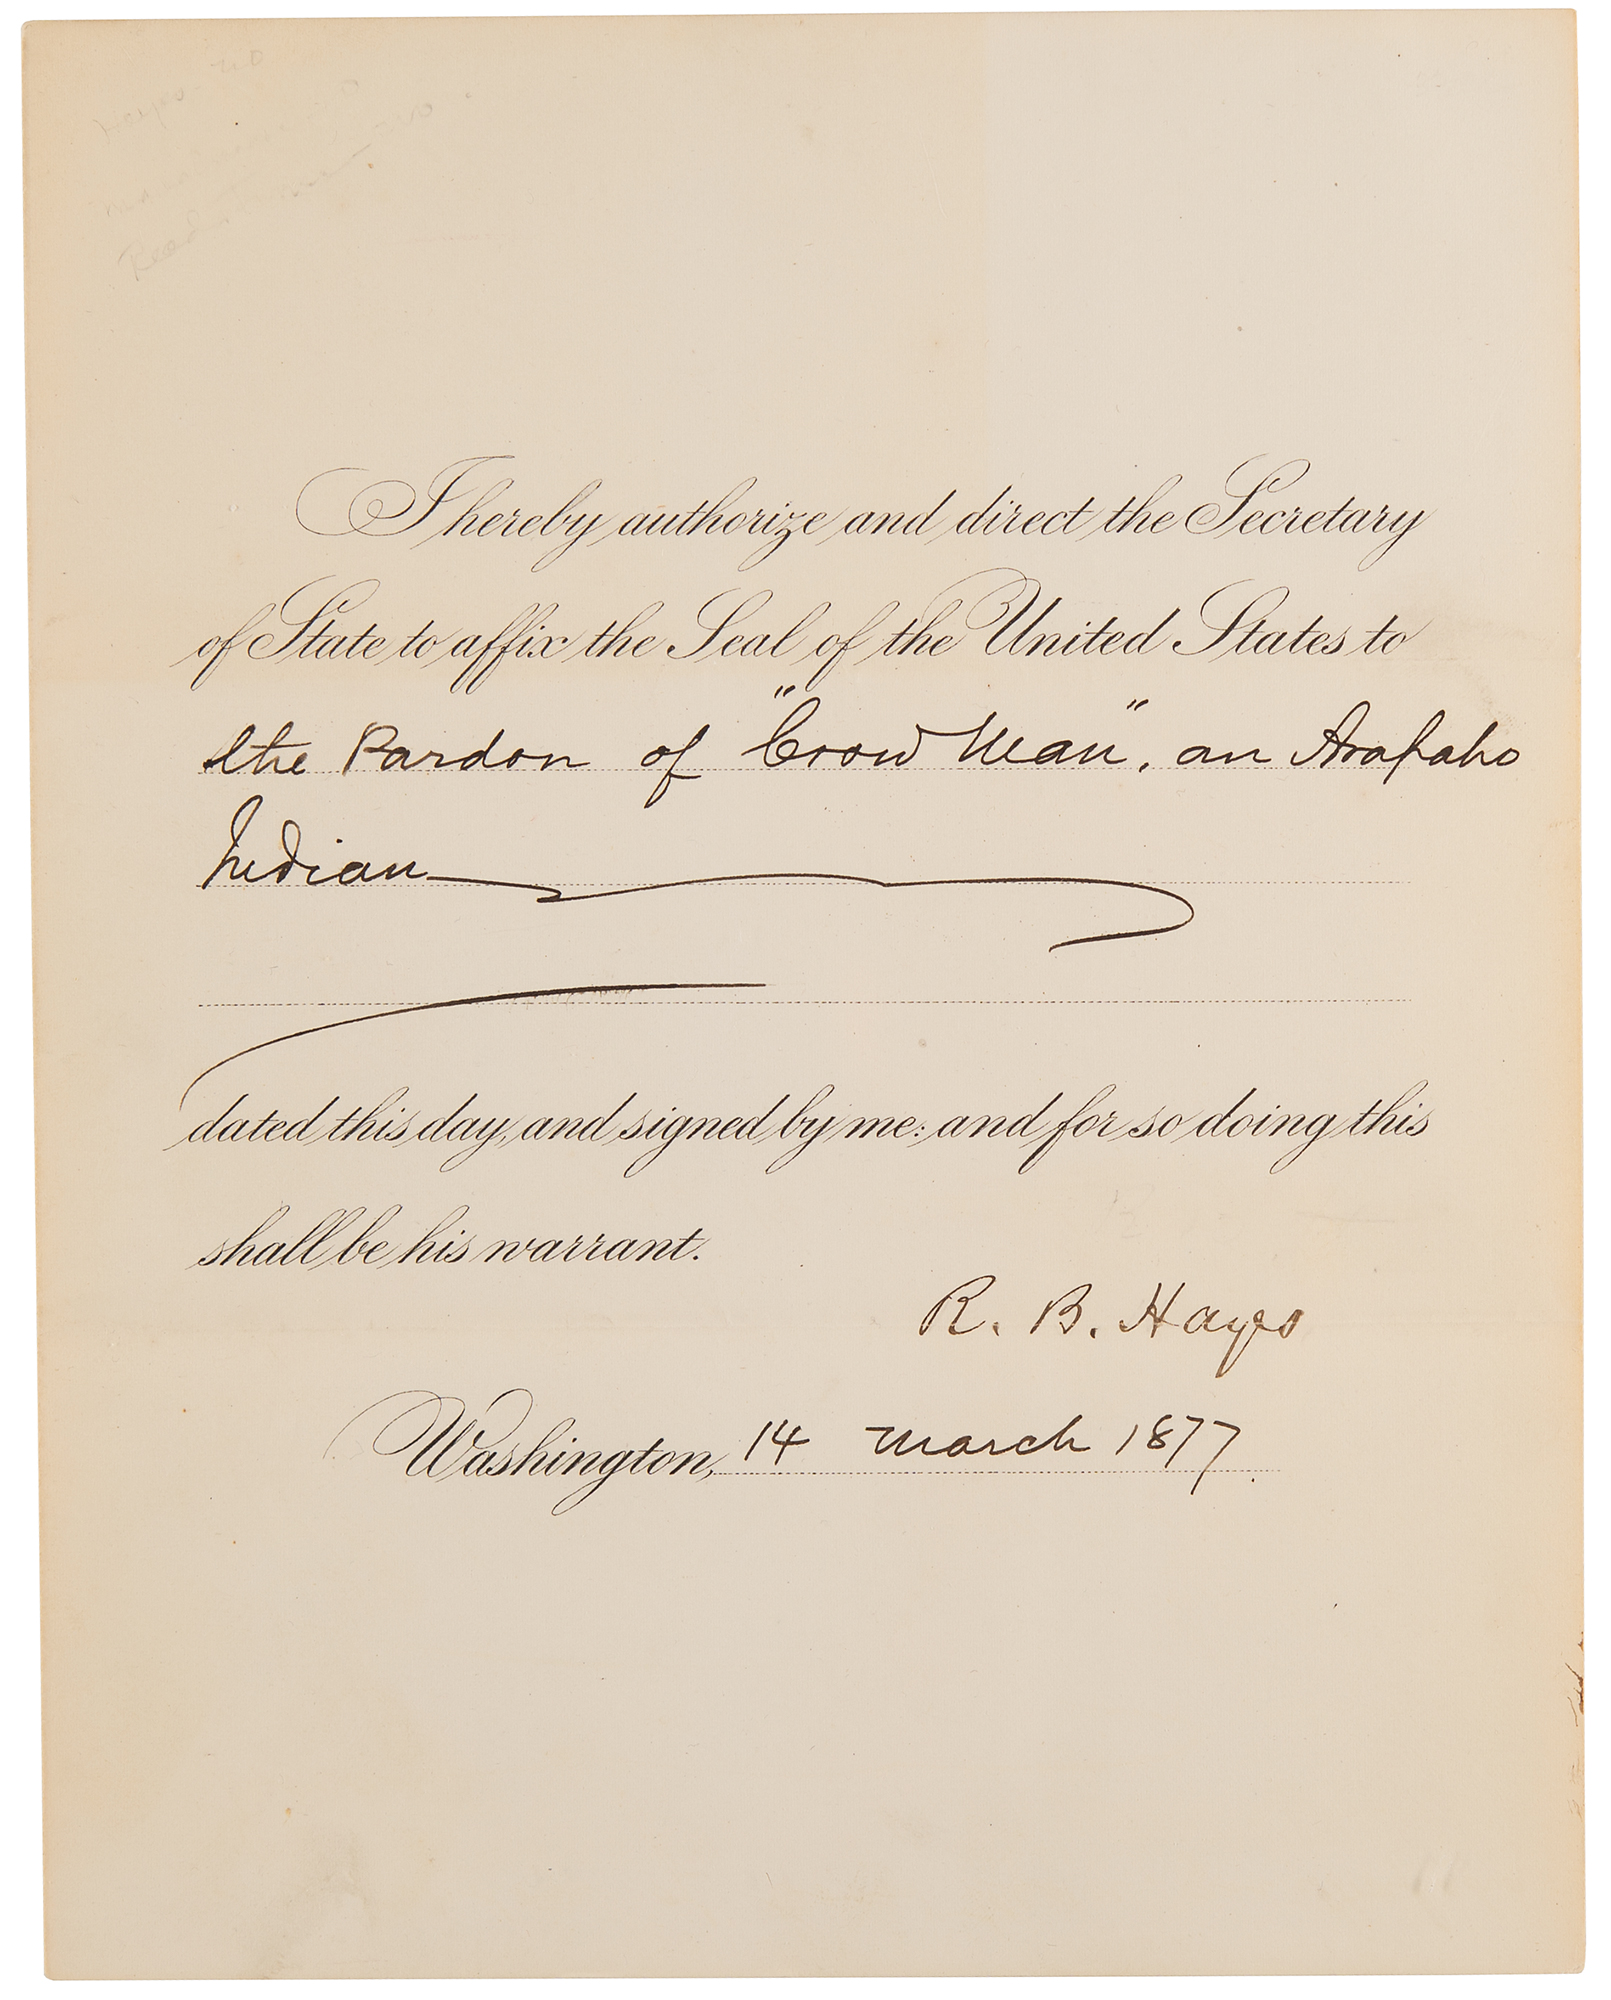 I hereby authorize and direct the Secretary
of State to affix the Seal of the United States to
the Pardon of "Crow Man", an Arapaho
Indian
dated this day, and signed by me: and for so doing this
shall be his warrant.
R. B. Hayes
Washington, 14 March 1877.